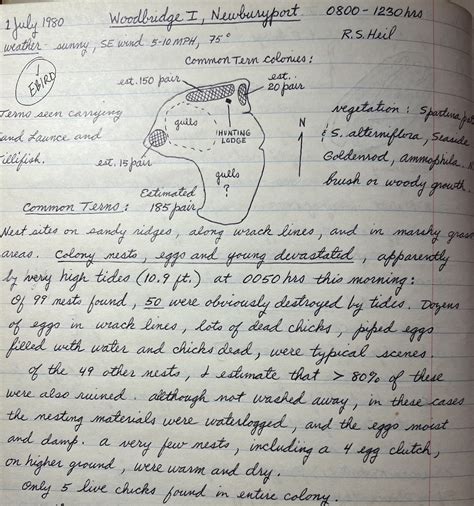 1 July 1980 Woodbridge I, Newburyport 0800-1230 hrs
weather - sunny, SE wind 5-10 MPH, 75° R.S. Heil
Common Tern Colonies:
✓ EBIRD
est. 150 pair
est. 20 pair
Terns seen carrying
Sand Launce and
Killifish.
gulls
HUNTING LODGE
est. 15 pair
gulls ?
N
vegetation: Spartina
& S. alterniflora, Seaside
Goldenrod, Ammophila.
brush or woody growth
Estimated
Common Terns: 185 pair
Nest sites on sandy ridges, along wrack lines, and in marshy grass
areas. Colony nests, eggs and young devastated, apparently
by very high tides (10.9 ft.) at 0050 hrs this morning:
Of 99 nests found, 50 were obviously destroyed by tides. Dozens
of eggs in wrack lines, lots of dead chicks, piped eggs
filled with water and chicks dead, were typical scenes.
Of the 49 other nests, I estimate that > 80% of these
were also ruined. Although not washed away, in these cases
the nesting materials were waterlogged, and the eggs moist
and damp. A very few nests, including a 4 egg clutch,
on higher ground, were warm and dry.
Only 5 live chicks found in entire colony.